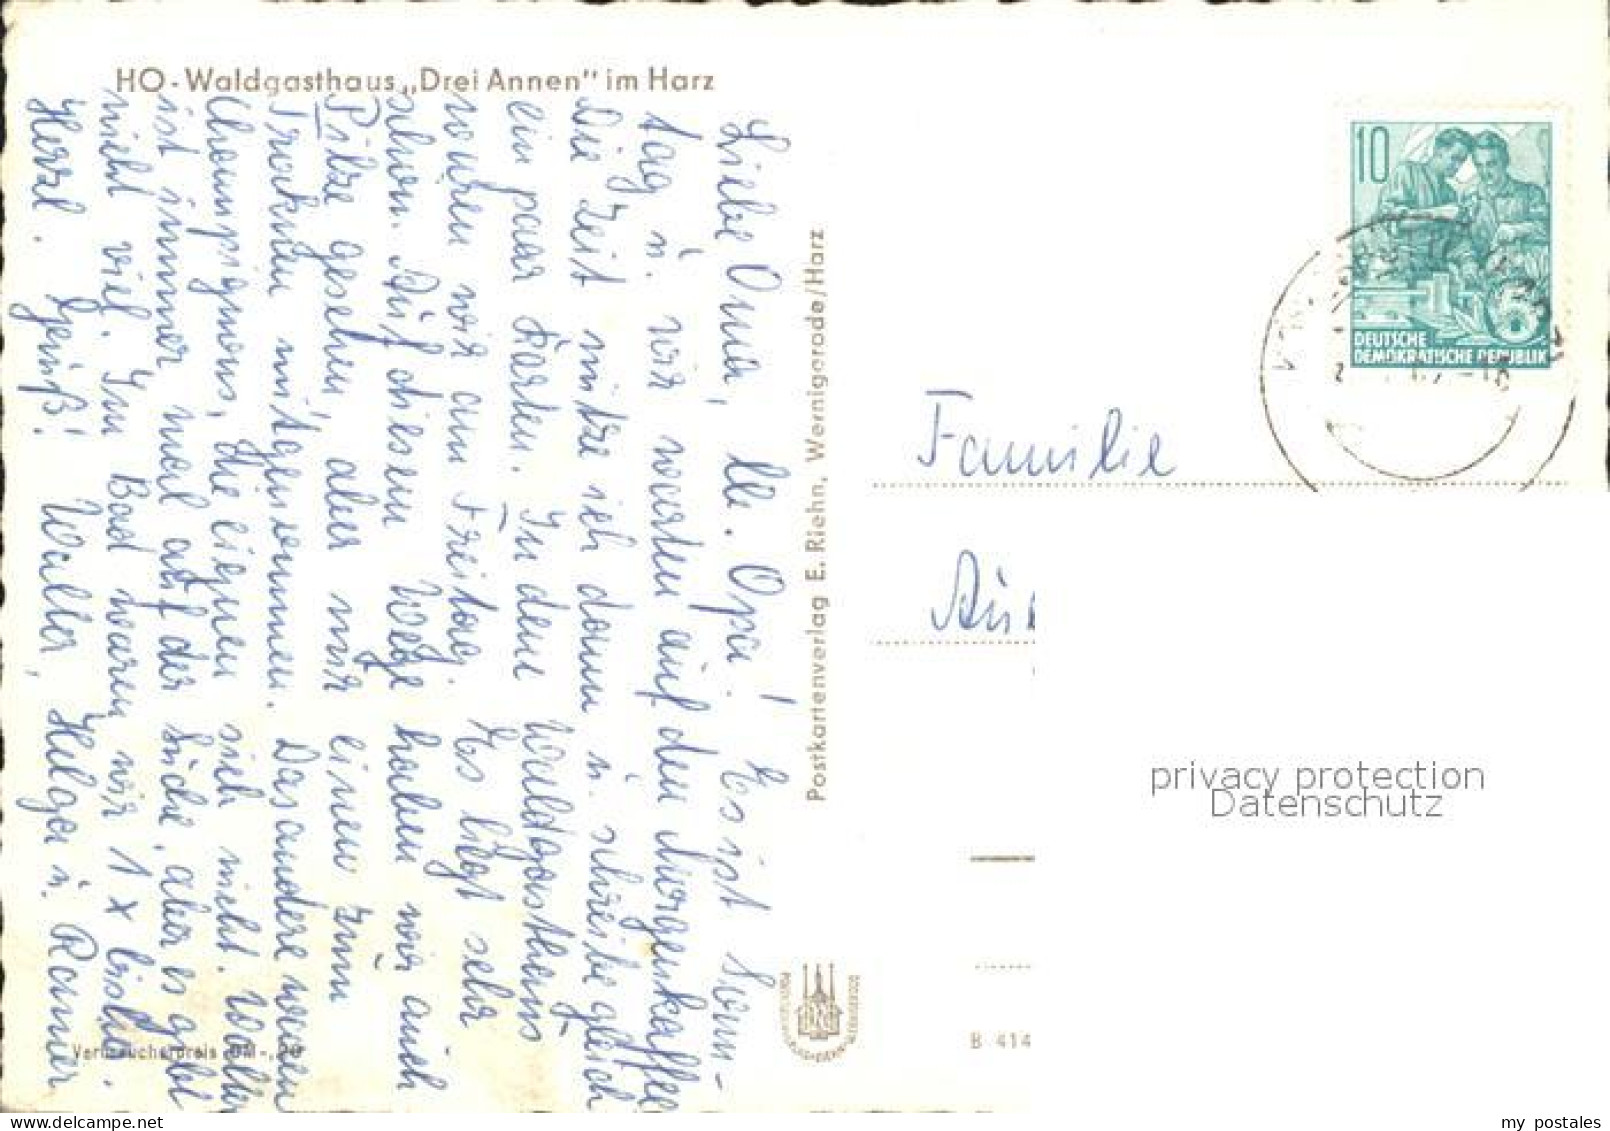 HO-Waldgasthaus „Drei Annen" im Harz
Liebe Oma, lb. Opa! Es ist Sonn-
tag u. wir warten auf den Morgenkaffee
Die Zeit nütze ich dann u. schreibe gleich
ein paar Karten. In dem Waldgasthaus
waren wir am Freitag. Es liegt sehr
schön. Auf diesem Wege haben wir auch
Pilze gesehen, aber nur einen zum
Trocknen mitgenommen. Das andere waren
Champignons, die eignen sich nicht. Walter
ist immer mal auf der Suche, aber es gibt
nicht viel. Im Bad waren wir 1 x bisher.
Herzl. Grüß! Walter, Helga u. Rainer
Verbraucherpreis DM -,20
Postkartenverlag E. Riehn, Wernigerode/Harz
10
DEUTSCHE
DEMOKRATISCHE REPUBLIK
Familie
privacy protection
Datenschutz
B 414
my postales